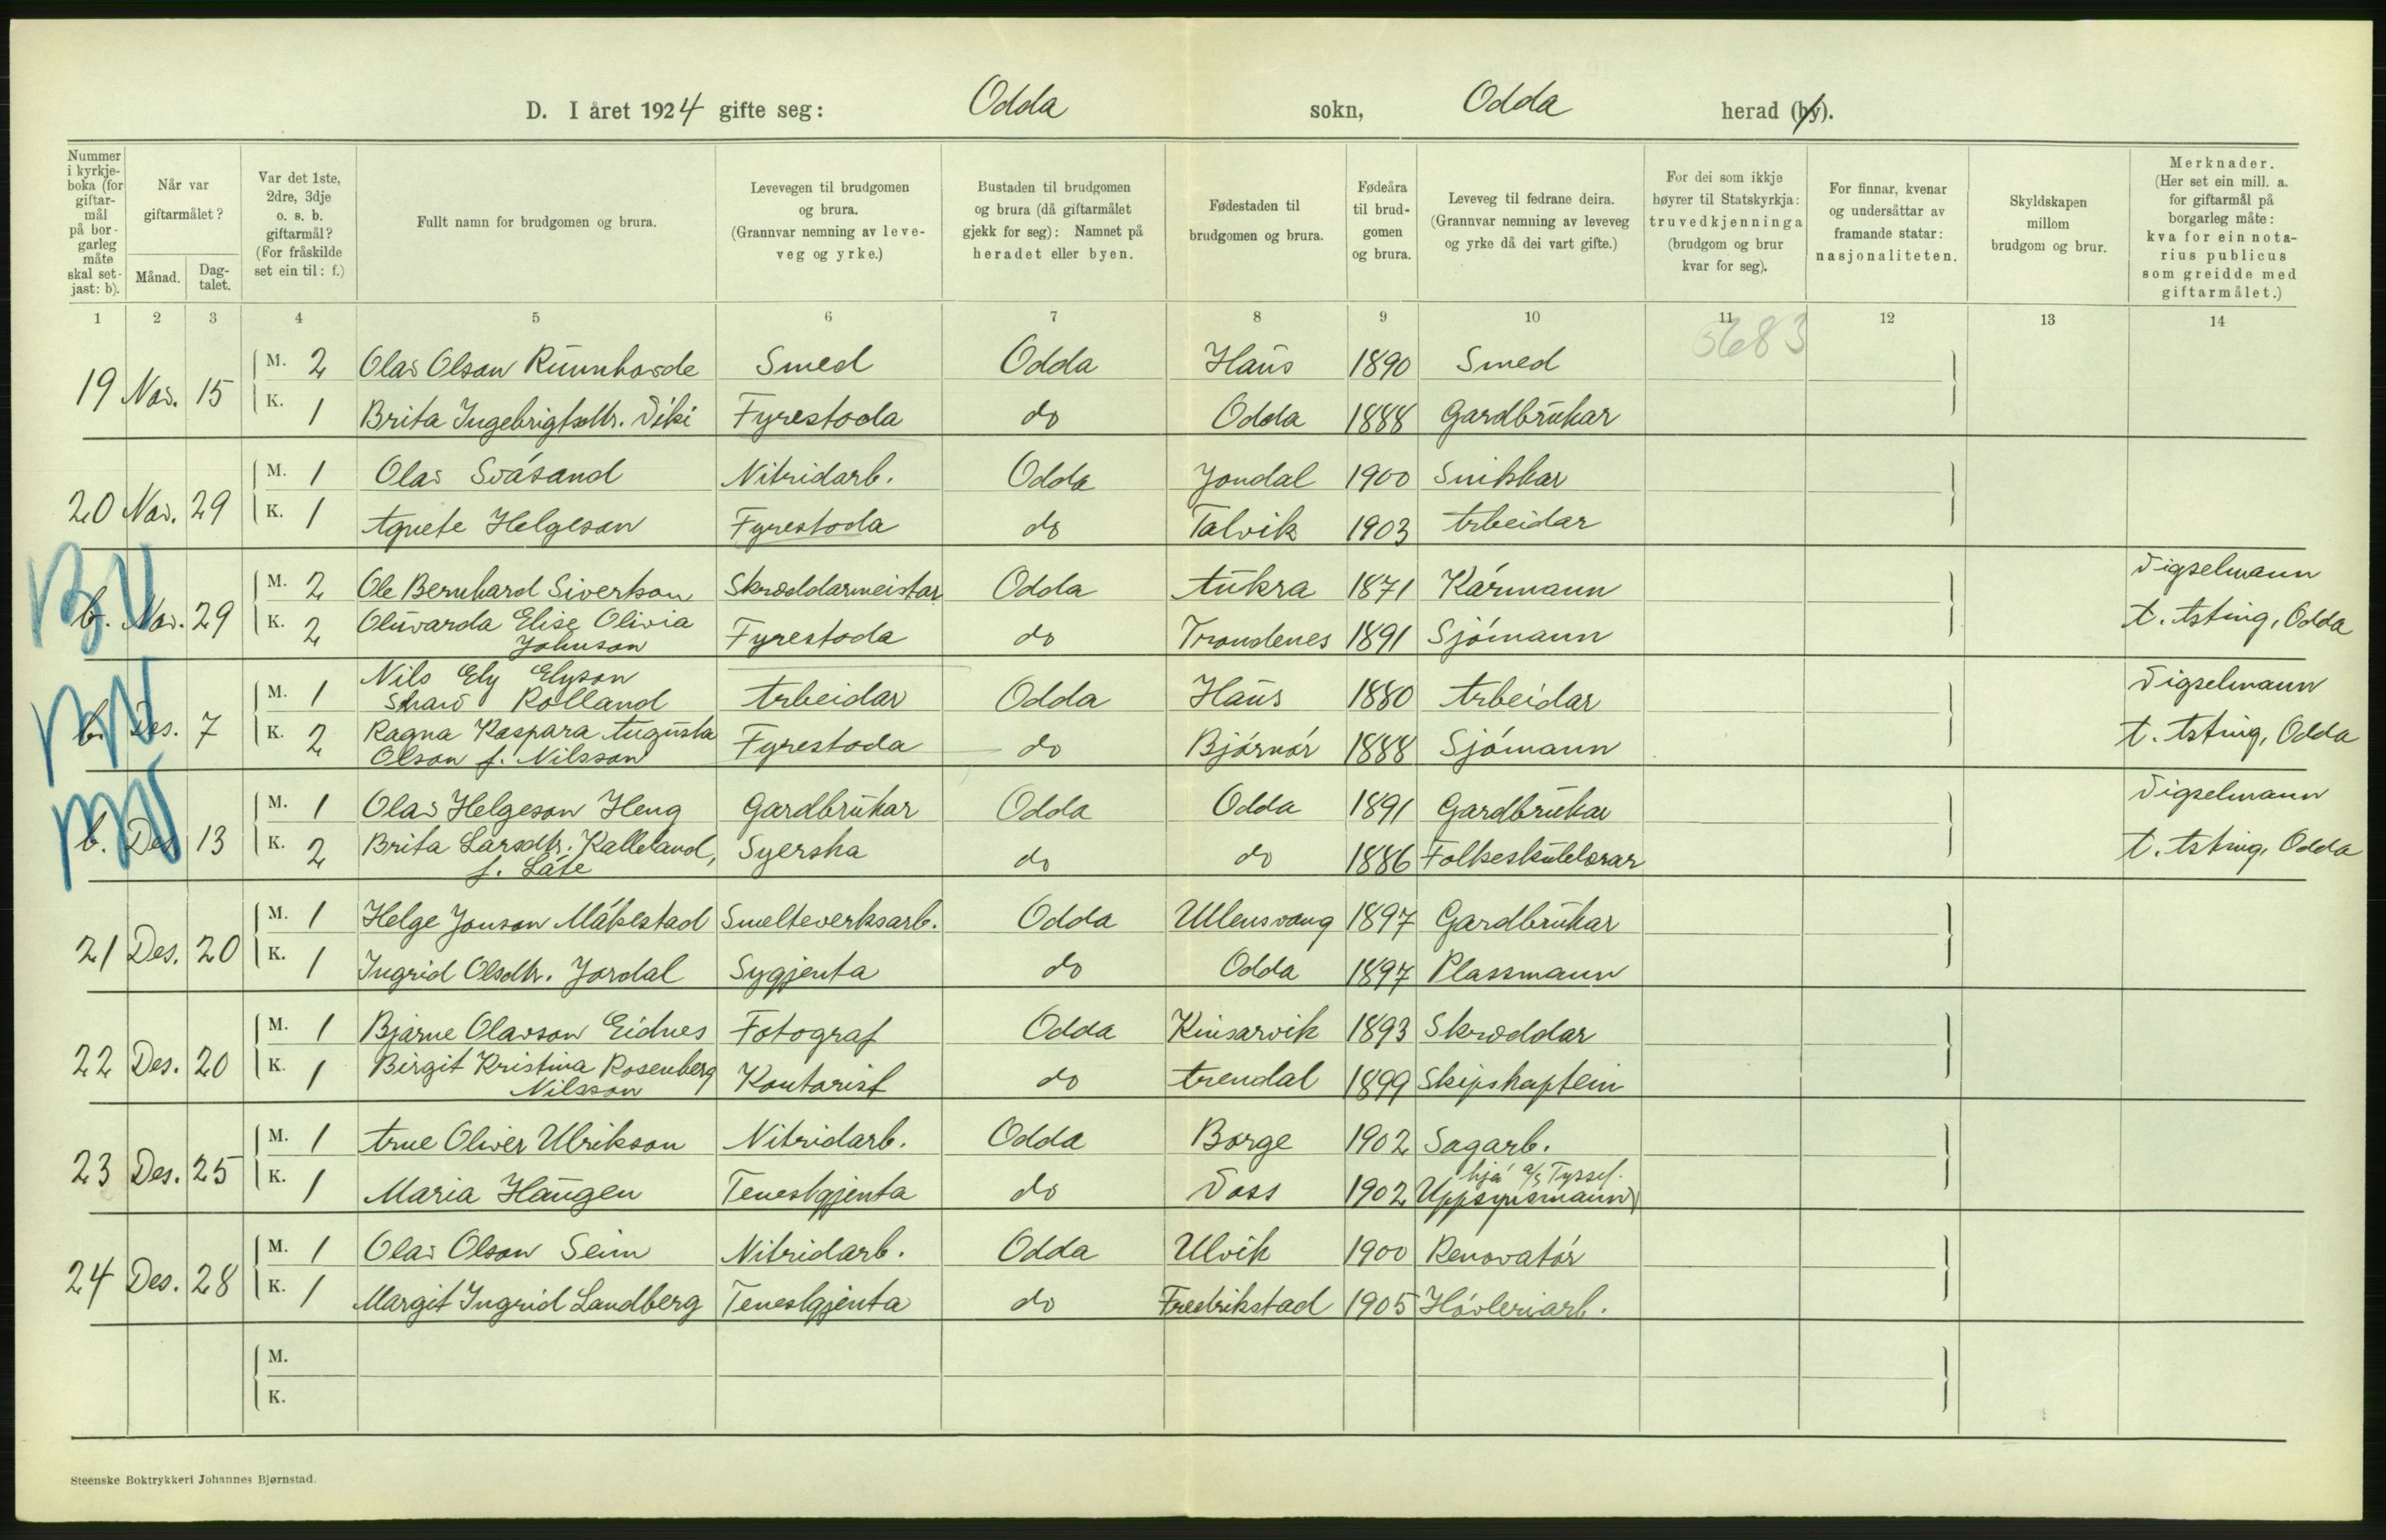 D. I året 1924 gifte seg: Odda sokn, Odda herad (by).
Nummer i kyrkje-boka (for giftar-mål på bor-garleg måte skal set-jast: b).
Når var giftarmålet?
Månad.
Dag-talet.
Var det 1ste, 2dre, 3dje o. s. b. giftarmål? (For fråskilde set ein til: f.)
Fullt namn for brudgomen og brura.
Levevegen til brudgomen og brura. (Grannvar nemning av leve-veg og yrke.)
Bustaden til brudgomen og brura (då giftarmålet gjekk for seg): Namnet på heradet eller byen.
Fødestaden til brudgomen og brura.
Fødeåra til brud-gomen og brura.
Leveveg til fedrane deira. (Grannvar nemning av leveveg og yrke då dei vart gifte.)
For dei som ikkje høyrer til Statskyrkja: truvedkjenninga (brudgom og brur kvar for seg).
For finnar, kvenar og undersåttar av framande statar: nasjonaliteten.
Skyldskapen millom brudgom og brur.
Merknader. (Her set ein mill. a. for giftarmål på borgarleg måte: kva for ein nota-rius publicus som greidde med giftarmålet.)
1 2 3 4 5 6 7 8 9 10 11 12 13 14
19 Nov. 15 M. 2 Olav Olson Runnhovde Smed Odda Haus 1890 Smed
K. 1 Brita Ingebrigtsdtr. Viki Fyrestoda do Odda 1888 Gardbrukar
20 Nov. 29 M. 1 Olav Svåsand Nitridarb. Odda Jondal 1900 Snikkar
K. 1 Agnete Helgeson Fyrestoda do Talvik 1903 Arbeidar
b. Nov. 29 M. 2 Ole Bernhard Sivertson Skræddarmeistar Odda Aukra 1871 Kårmann Vigselmann
K. 2 Oluvarda Elise Olivia Johnson Fyrestoda do Trondenes 1891 Sjómann A. Asting, Odda
b. Des. 7 M. 1 Nils Ely Elyson Skaw Rolland Arbeidar Odda Haus 1880 Arbeidar Vigselmann
K. 2 Ragna Kaspara Augusta Olson f. Nilsson Fyrestoda do Bjórnór 1888 Sjómann A. Asting, Odda
b. Des. 13 M. 1 Olav Helgeson Heng Gardbrukar Odda Odda 1891 Gardbrukar Vigselmann
K. 2 Brita Larsdtr. Kalleland, f. Låte Syerska do do 1886 Folkeskulelærar A. Asting, Odda
21 Des. 20 M. 1 Helge Jonson Måkestad Smelteverksarb. Odda Ullensvang 1897 Gardbrukar
K. 1 Ingrid Olsdtr. Jordal Sygjenta do Odda 1897 Plassmann
22 Des. 20 M. 1 Bjarne Olavson Eidnes Fotograf Odda Kinsarvik 1893 Skræddar
K. 1 Birgit Kristina Rosenberg Nilsson Kontorist do Arendal 1899 Skipskaptein
23 Des. 25 M. 1 Arne Oliver Ulrikson Nitridarb. Odda Borge 1902 Sagarb.
K. 1 Maria Haugen Tenestgjenta do Voss 1902 Uppsynsmann hjå a/s Tyssef.
24 Des. 28 M. 1 Olav Olson Seim Nitridarb. Odda Ulvik 1900 Renovatór
K. 1 Margit Ingrid Landberg Tenestgjenta do Fredrikstad 1905 Hóvleriarb.
M.
K.
Steenske Boktrykkeri Johannes Bjørnstad.